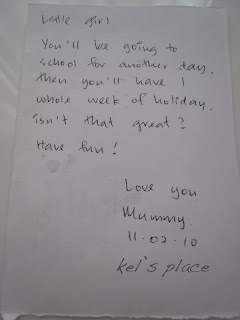 Little girl
You'll be going to
school for another day,
then you'll have 1
whole week of holiday.
isn't that great?
Have fun!
Love you
Mummy.
11.02.10
kel's place